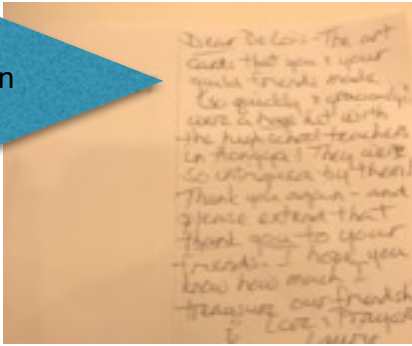 n
Dear DeLois - The art
cards that you & your
guild friends made
so quickly & graciously
were a huge hit with
the high school teachers
in         ! They were
so intrigued by them!
Thank you again - and
please extend that
thank you to your
friends. I hope you
know how much I
treasure our friendsh
Love & Prayer
Laurie